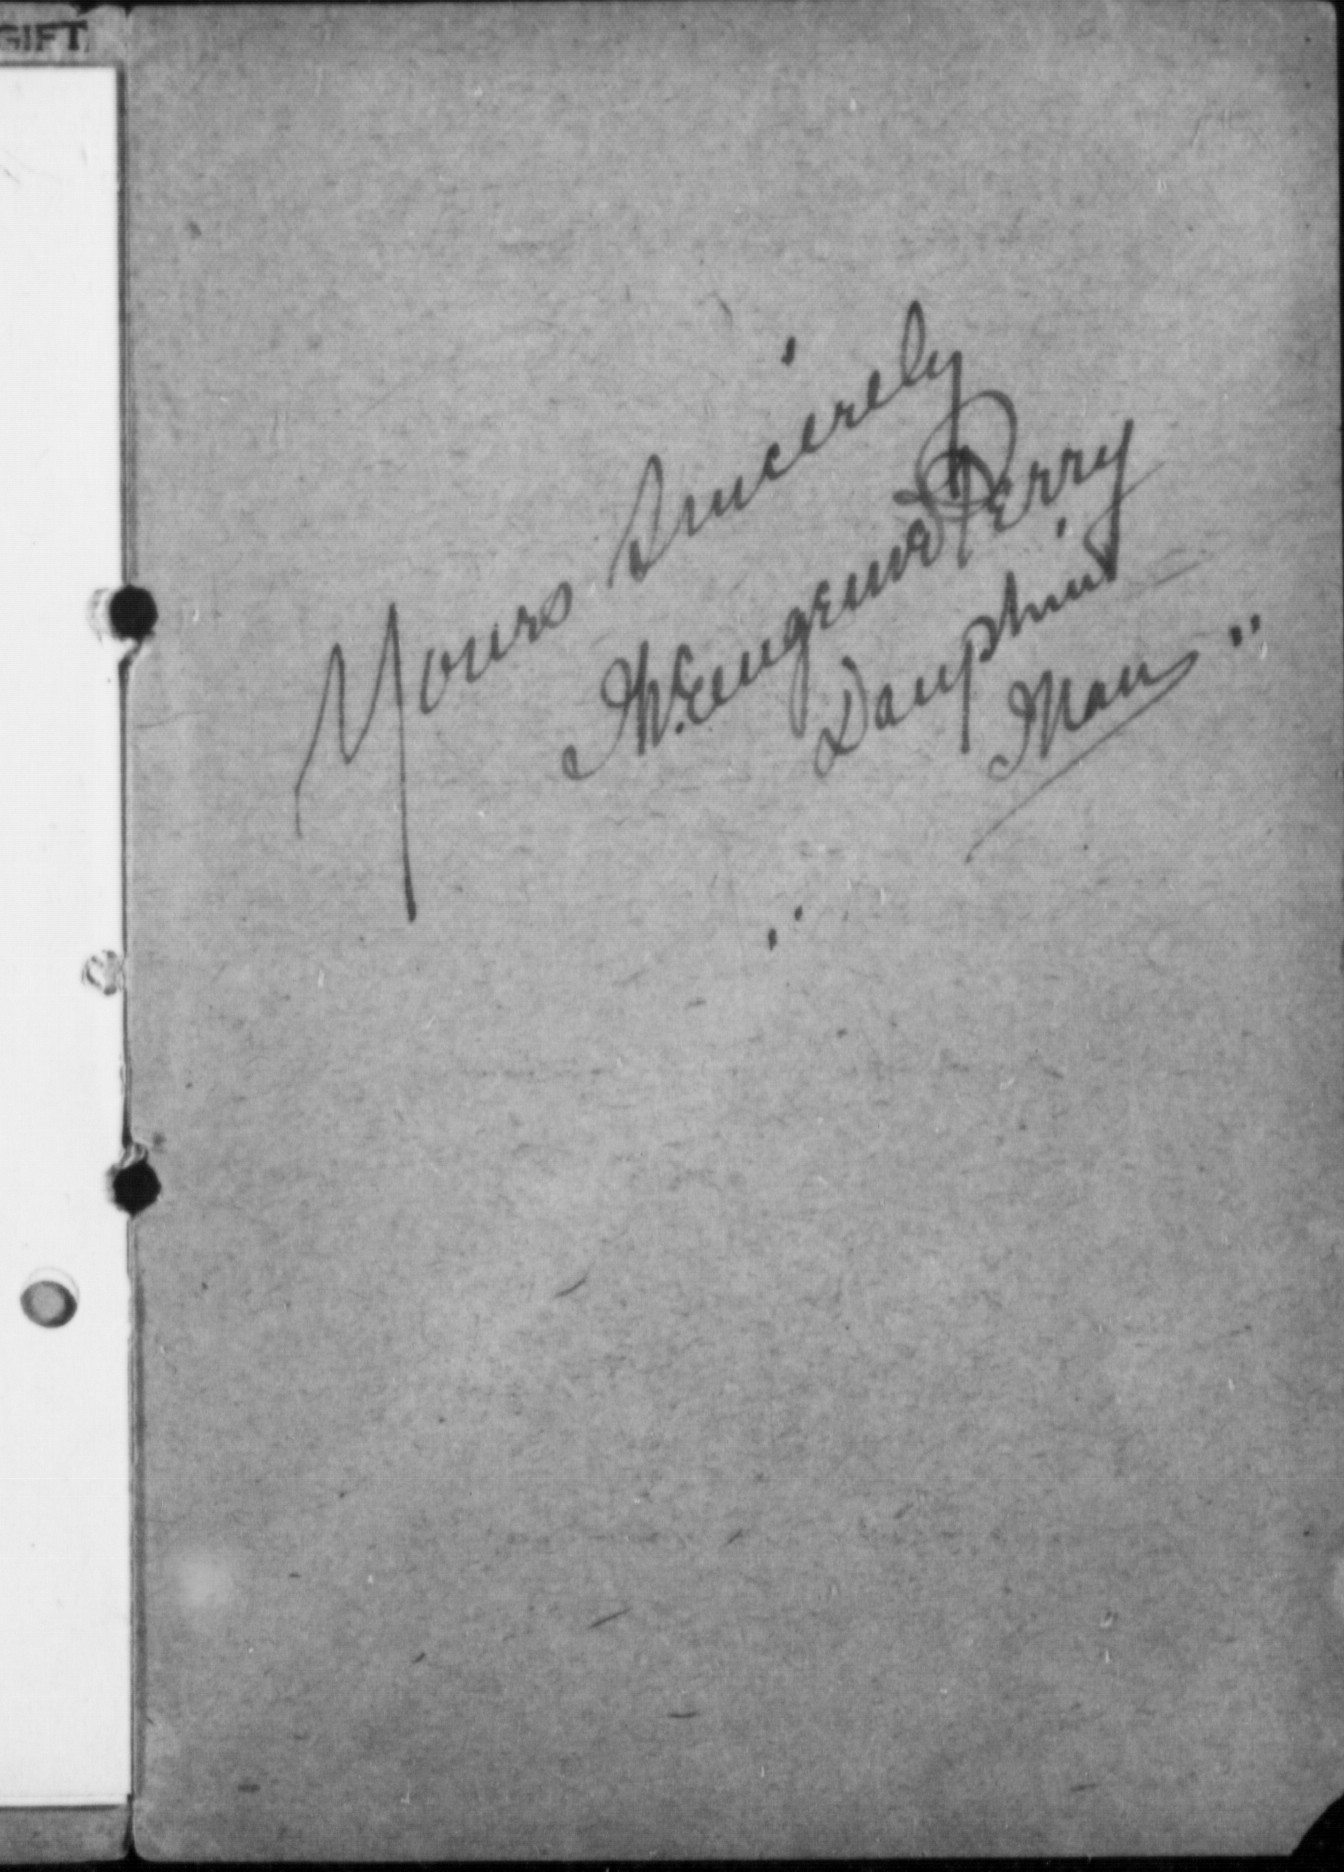 GIFT
Yours Sincerely
M. Eugenie Perry
Dauphin
Man